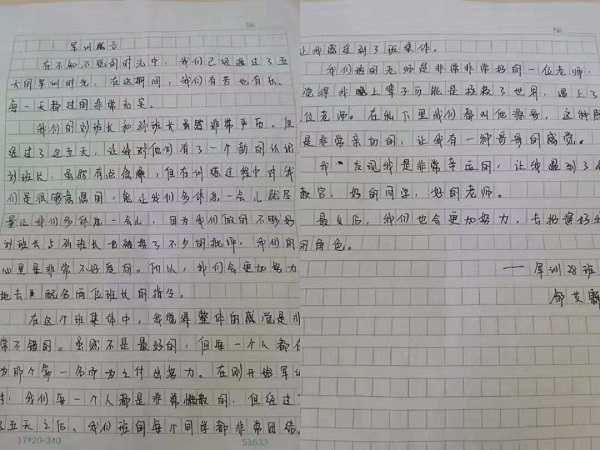 No
军训感言
在不知不觉的时光中，我们已经度过了五
天的军训时光，在这期间，我们有苦也有乐，
每一天都过的非常充实。
我们的刘班长和孙班长虽然非常严厉。但
经过了这五天，让我对他们有了一个新的认识
刘班长，虽然有点傲娇，但在训练过程中对我
们是很
的，能让我们多休息一会儿就尽
量让我们多休息一会儿，因为我们做的不够好
刘班长与孙班长也被
了不少的批评，我们的
心里是非常不好受的。所以，我们会更加努力
地去
配合两位班长的指令。
在这个班集体中，我觉得整体的感觉是非
常不错的。虽然不是最好的，但每一个人都在
为那个第一名而为之付出努力。在刚开始军训
时，我们每一个人都是非常
的，但经过了
这五天之后，我们班的每个同学都非常团结，
17*20=340
53633
No
让我感受到了班集体。
我们班的老师是非常非常好的一位老师，
觉得我
上辈子可能是拯救了世界，遇上了
位老师。在私下里我们都叫他
哥，这种
是非常亲切的，让我有一种哥哥的感觉。
我
发现我是非常幸运的，让我遇到了
教官，好的同学，好的老师。
最后，我们也会更加努力，去扮演好
的角色。
——军训28班